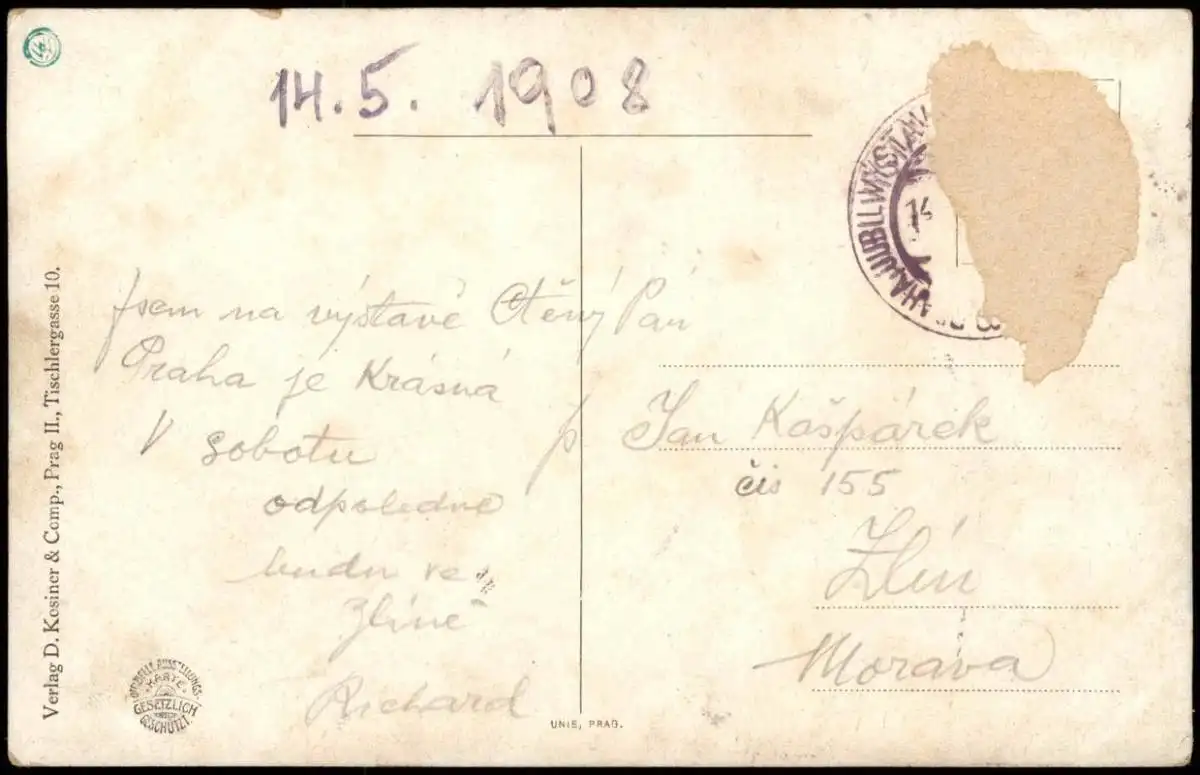 14.5. 1908
Jsem na výstavě
Praha je Krásná
V sobotu
odpoledne
budu ve
Zlíně
Richard
Ctěný Pán
p Jan Kašpárek
čis 155
Zlín
Morava
14
Verlag D. Kosiner & Comp., Prag II., Tischlergasse 10.
OFFIZIELLE AUSSTELLUNGS-
KARTE
GESETZLICH
GESCHÜTZT
UNIE, PRAG.